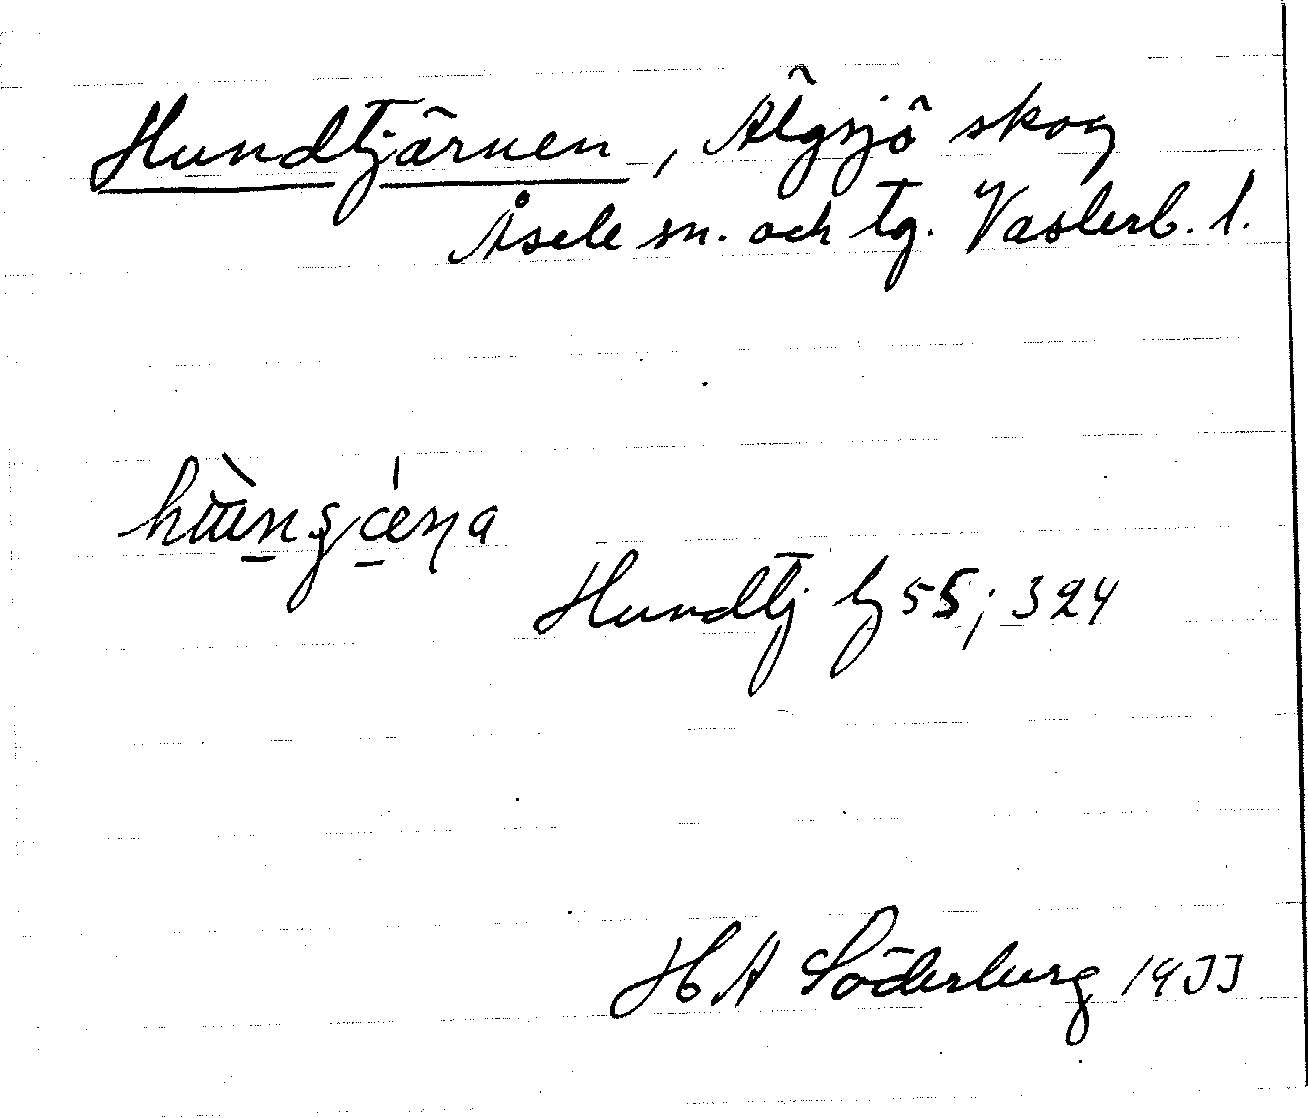 Hundtjärnen, Älgsjö skog
Åsele sn. och tg. Västerb. l.
Hundtj 55; 324
H A Söderberg 1933